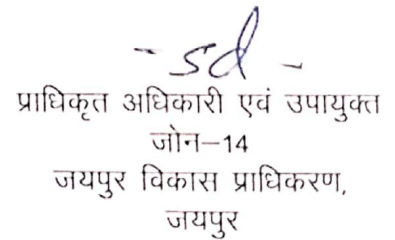 -sd-
प्राधिकृत अधिकारी एवं उपायुक्त
जोन-14
जयपुर विकास प्राधिकरण,
जयपुर